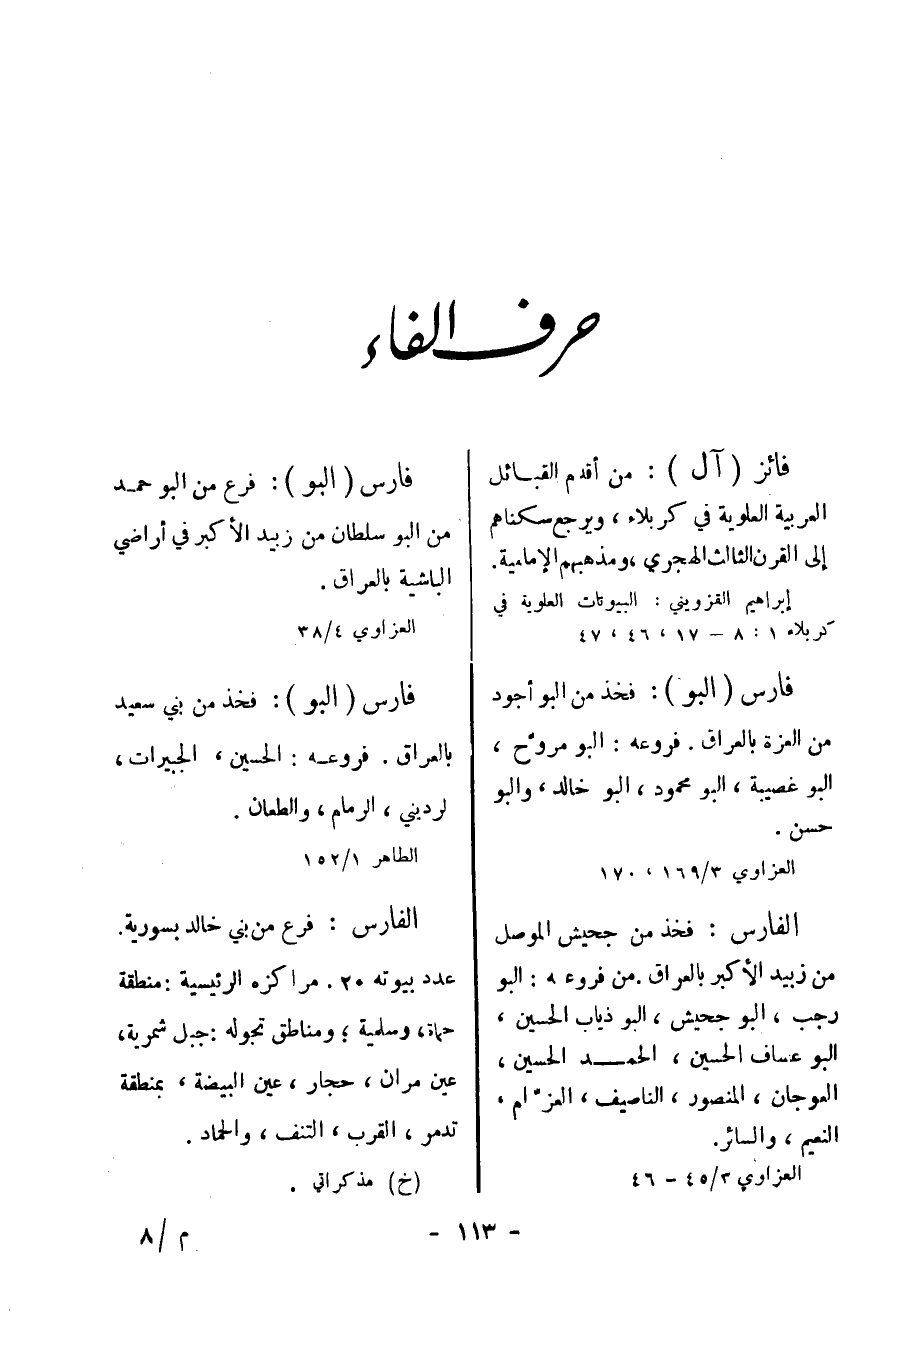 حرف الفاء
فائز ( آل ) : من أقدم القبائل
العربية العلوية في كربلاء ، ويرجع سكناهم
إلى القرن الثالث الهجري ، ومذهبهم الإمامية.
إبراهيم القزويني : البيوتات العلوية في
كربلاء ١ : ٨ – ١٧ ، ٤٦ ، ٤٧
فارس ( البو ) : فخذ من البو أجود
من العزة بالعراق . فروعه : البو مروّح ،
البو غصيبة ، البو محمود ، البو خالد ، والبو
حسن .
العزاوي ٣/‏١٦٩ ، ١٧٠
الفارس : فخذ من جحيش الموصل
من زبيد الأكبر بالعراق . من فروعه : البو
رجب ، البو جحيش ، البو ذياب الحسين ،
البو عساف الحسين ، الحمد الحسين ،
العوجان ، المنصور ، الناصيف ، العزّام ،
النعيم ، والسائر.
العزاوي ٣/‏٤٥ – ٤٦
فارس ( البو ) : فرع من البو حمد
من البو سلطان من زبيد الأكبر في أراضي
الباشية بالعراق .
العزاوي ٤/‏٣٨
فارس ( البو ) : فخذ من بني سعيد
بالعراق . فروعه : الحسين ، الجبيرات ،
لرديني ، الرمام ، والطعان .
الطاهر ١/‏١٥٢
الفارس : فرع من بني خالد بسورية.
عدد بيوته ٢٠ . مراكزه الرئيسية : منطقة
حماة ، وسلمية ؛ ومناطق تجوله : جبل شمرية،
عين مران ، حجار ، عين البيضة ، بمنطقة
تدمر ، القرب ، التنف ، والحماد .
(خ) مذكراتي .
– ١١٣ –
م / ٨